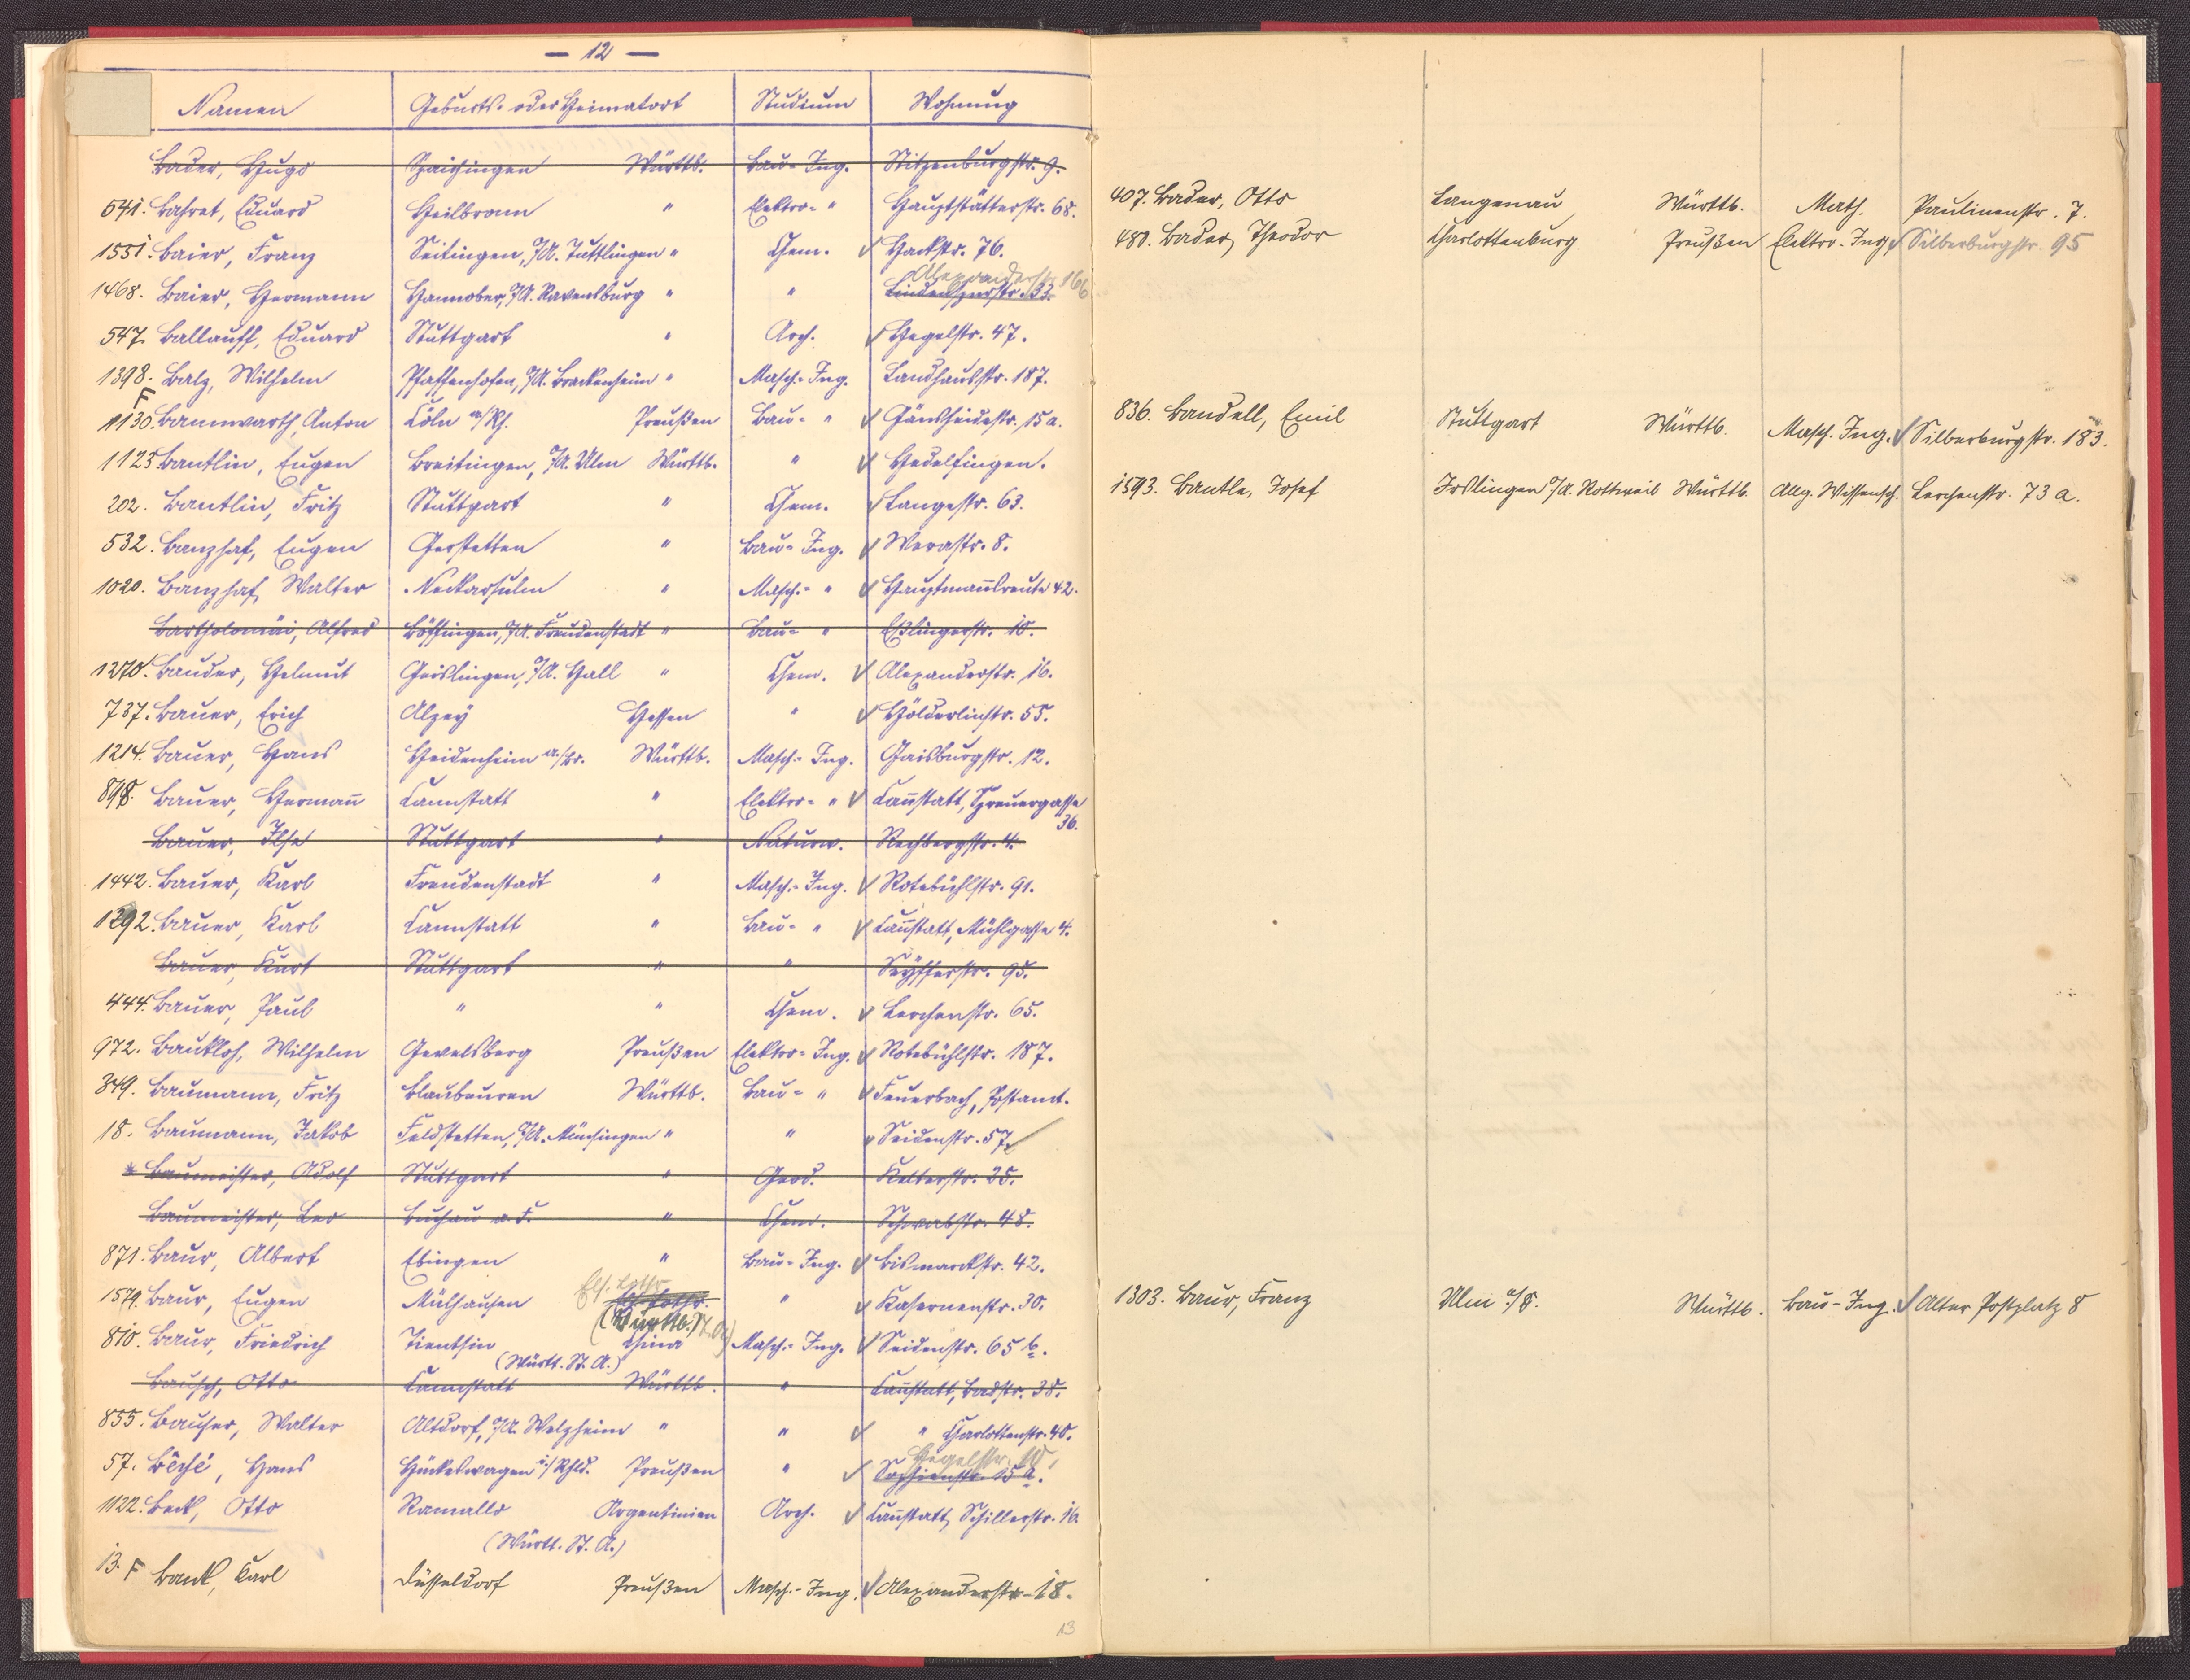 — 12 —
Namen Geburts- oder Heimatort Studium Wohnung
Bader, Hugo Spaichingen Württb. Bau-Ing. Stitzenburgstr. 9.
541. Bahret, Eduard Heilbronn " Elektro- " Hauptstätterstr. 68.
1551. Baier, Franz Seitingen, O/A. Tuttlingen " Chem. Hackstr. 76.
Alexanderstr. 166
1468. Baier, Hermann Hannober, O/A. Ravensburg " " Lindenspürstr. 33.
547. Ballauff, Eduard Stuttgart " Arch. Hegelstr. 47.
1398. Balz, Wilhelm Pfaffenhofen, O/A. Brackenheim " Masch.-Ing. Landhausstr. 187.
F
1130. Bannwarth, Anton Cöln a/Rh. Preußen Bau- " Gänsheidestr. 15 a.
1125 Bantlin, Eugen Breitingen, O/A. Ulm Württb. " Hedelfingen.
202. Bantlin, Fritz Stuttgart " Chem. Langestr. 63.
532. Banzhaf, Eugen Gerstetten " Bau-Ing. Werastr. 8.
1020. Banzhaf, Walter Neckarsulm " Masch.- " Hauptmañsreute 42.
Bartholomäi, Alfred Böffingen, O/A. Freudenstadt " Bau- " Eßlingerstr. 10.
1270. Bauder, Helmut Geislingen, O/A. Hall " Chem. Alexanderstr. 16.
737. Bauer, Erich Alzey Hessen " Hölderlinstr. 55.
1214. Bauer, Hans Heidenheim a./Br. Württb. Masch.-Ing. Gaisburgstr. 12.
898. Bauer, Hermañ Cannstatt " Elektro- " Cañstatt, Spreuergasse
36.
Bauer, Ilse Stuttgart " Naturw. Rechbergstr. 4.
1442. Bauer, Karl Freudenstadt " Masch.-Ing. Rotebühlstr. 91.
1292. Bauer, Karl Cannstatt " Bau- " Cañstatt, Mühlgasse 4.
Bauer, Kurt Stuttgart " " Seyfferstr. 95.
444. Bauer, Paul " " Chem. Lerchenstr. 65.
972. Baukloh, Wilhelm Gevelsberg Preußen Elektro-Ing. Rotebühlstr. 187.
349. Baumann, Fritz Blaubeuren Württb. Bau- " Feuerbach, Postamt.
18. Baumann, Jakob Feldstetten, O/A. Münsingen " " Seidenstr. 57.
* Baumeister, Adolf Stuttgart " Geod. Kelterstr. 35.
Baumeister, Leo Buchau a. F. " Chem. Schwabstr. 48.
871. Baur, Albert Ebingen " Bau-Ing. Bismarckstr. 42.
Els. Lothr.
1579. Baur, Eugen Mülhausen " Kasernenstr. 30.
(Württb. St. A.)
810. Baur, Friedrich Tientsin China Masch.-Ing. Seidenstr. 65 b.
(Württ. St. A.)
Bausch, Otto Cannstatt Württb. " Cañstatt, Badstr. 38.
855. Bauser, Walter Altdorf, O/A. Welzheim " " " Charlottenstr. 40.
Hegelstr. 10.
57. Bêché, Hans Hückeswagen i/Rhld. Preußen " Sophienstr. 15 a.
1122. Beck, Otto Ramallo Argentinien Arch. Cañstatt, Schillerstr. 16
(Württ. St. A.)
13. F Bank, Carl Düsseldorf Preußen Masch.-Ing. Alexanderstr. 18.
13
407. Bader, Otto Langenau Württb. Math. Paulinenstr. 7.
480. Bader, Theodor Charlottenburg Preußen Elektro.-Ing. Silberburgstr. 95
836. Bandell, Emil Stuttgart Württb. Masch. Ing. Silberburgstr. 183.
1593. Bantle, Josef Irslingen O/A. Rottweil Württb. Allg. Wissensch. Lerchenstr. 73 a.
1303. Baur, Franz Ulm a/D. Württb. Bau-Ing. Alter Postplatz 8